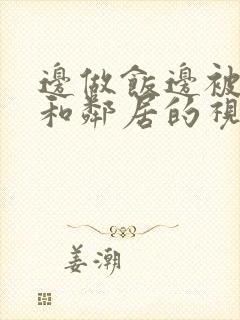 邊做飯邊被
和鄰居的視
姜潮